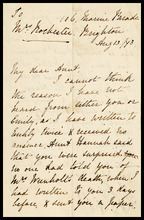 To
106 Marine Parade
Mrs Rochester
Brighton
Aug 13/93
My dear Aunt,
I cannot think
the reason I have not
heard from either you or
Emily, as I have written to
Emily twice & received no
answer Aunt Hannah said
that you were surprised
no one had told you of
Mr death, when I
had written to you 3 days
before, & sent you a paper.